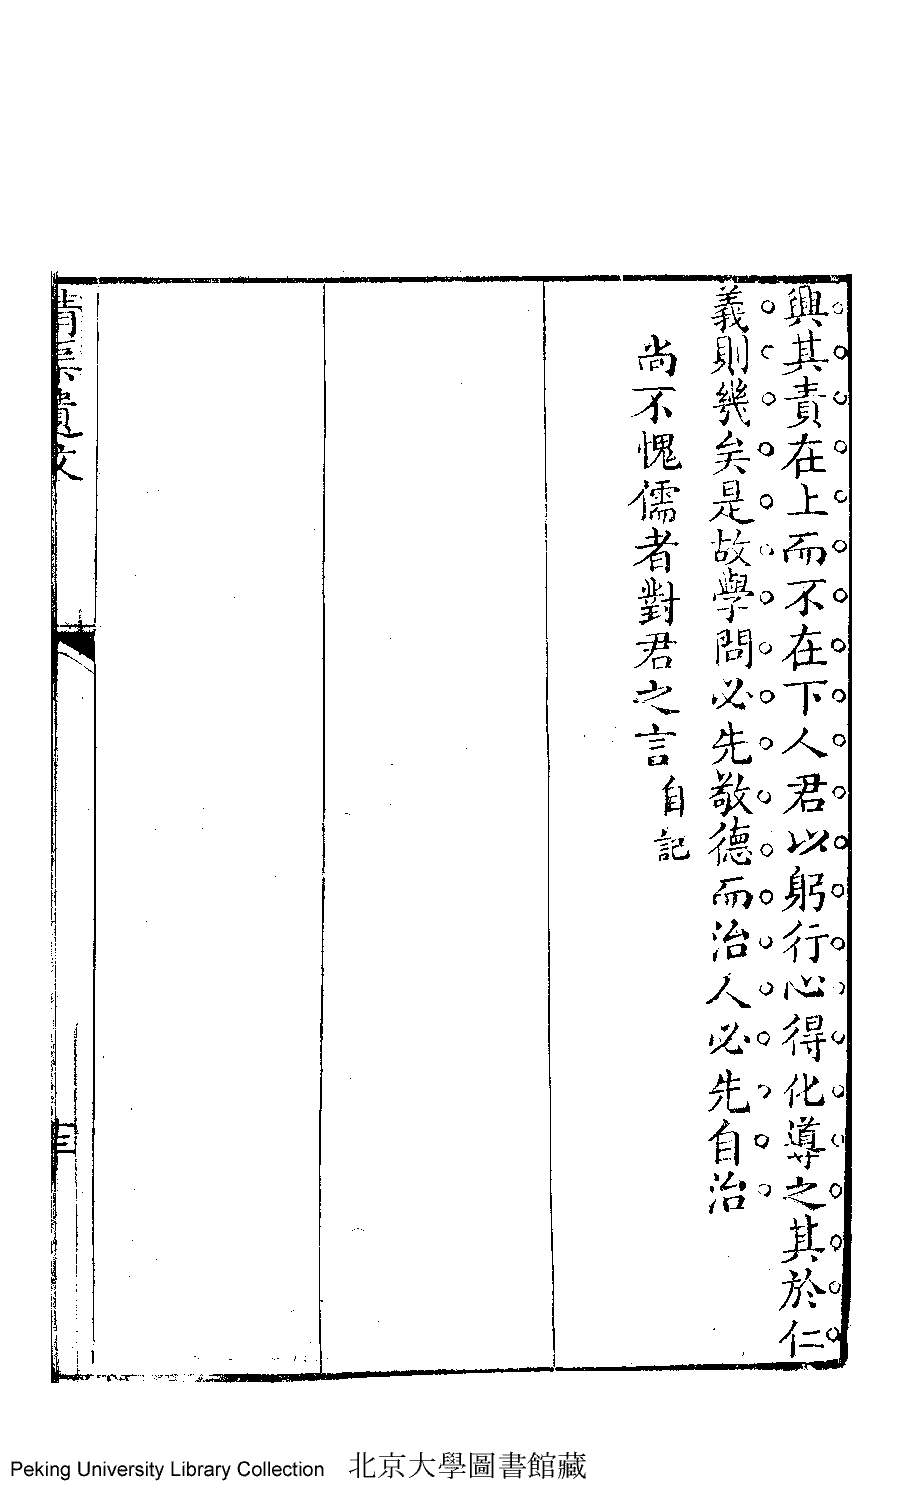 興其責在上而不在下人君以躬行心得化導之其於仁
義則幾矣是故學問必先敬德而治人必先自治
尚不愧儒者對君之言自記
遺文
Peking University Library Collection 北京大學圖書館藏